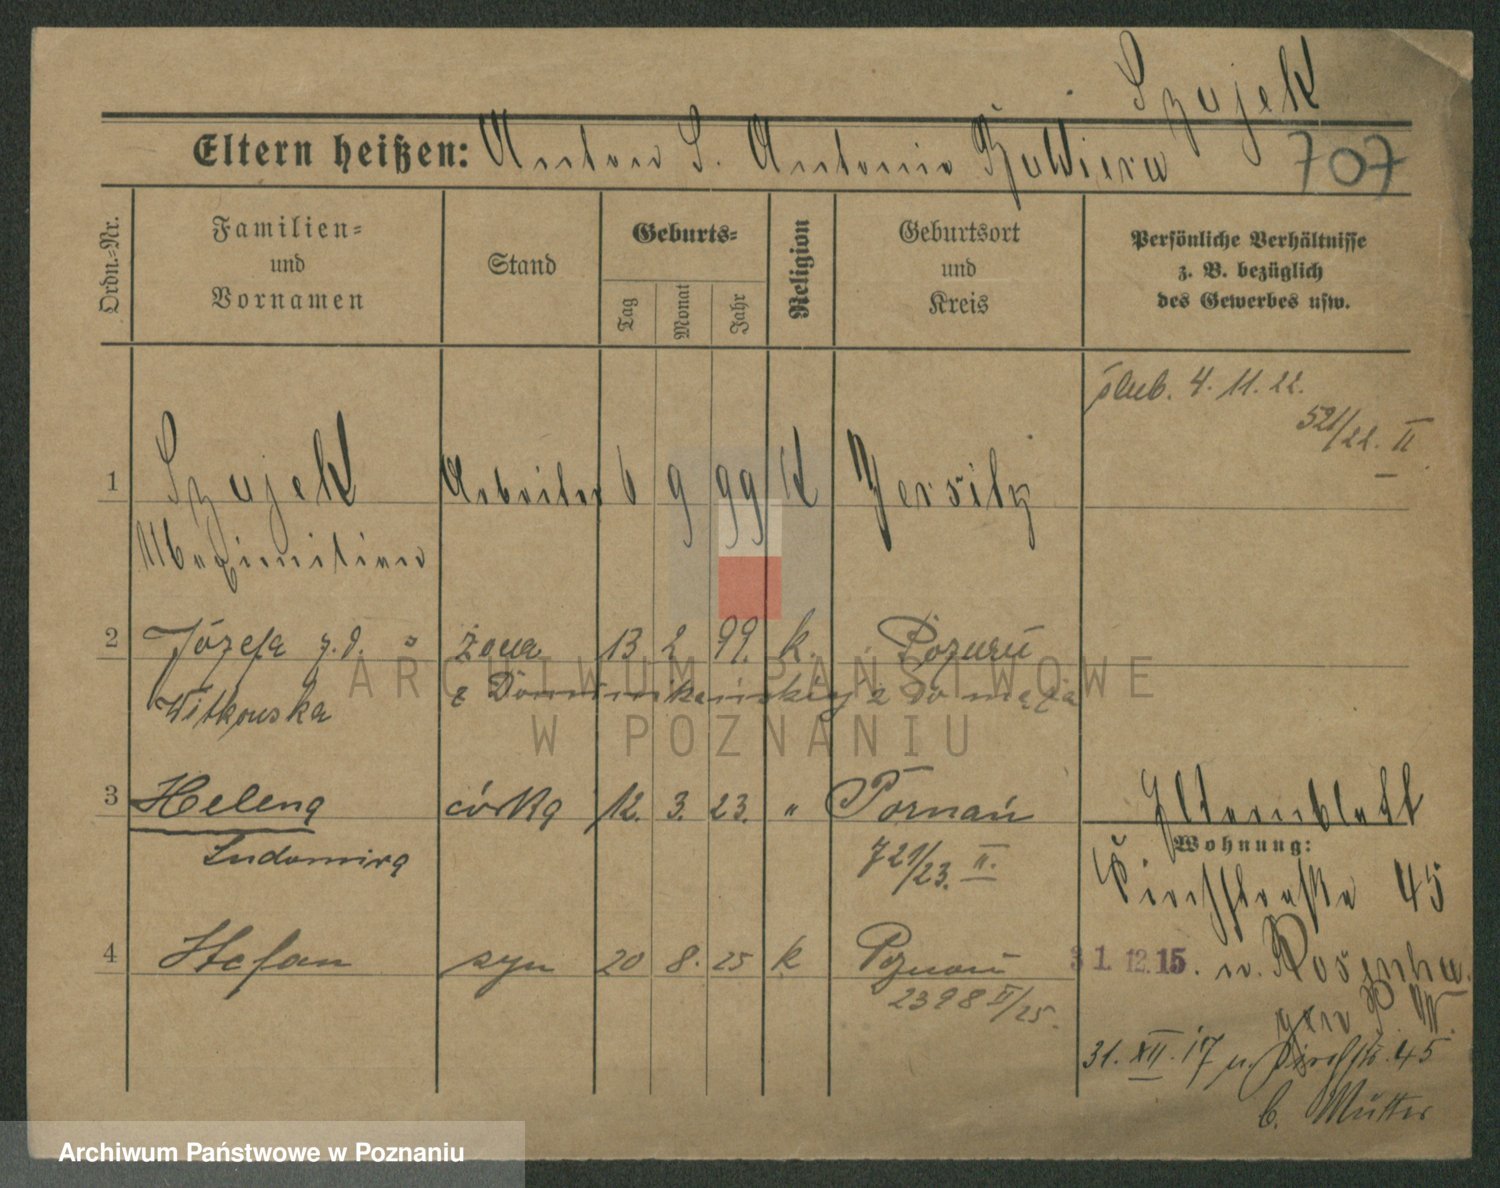 Szajek
707
Eltern heißen: Anton S. Antonie
Ordn.-Nr.
Familien- und Vornamen
Stand
Geburts-
Tag
Monat
Jahr
Religion
Geburtsort und Kreis
Persönliche Verhältnisse z. B. bezüglich des Gewerbes usw.
ślub. 4. 11. 22.
521/22. II
1 Szajek Arbeiter 6 9 99 K Jersitz
Maximilian
2 Józefa z. d. żona 13 2 99. k. Poznań
Witkowska z Dominikańskiej 2 do męża
3 Helena córka 12. 3. 23. " Poznań
Ludomira 721/23. II.
Elternblatt
Wohnung:
45
4 Stefan syn 20 8. 25 k Poznań
2398 II/25.
31.12.15. n. Rosenha
gen P. W.
31. XII. 17 n. 45
b. Mutter
ARCHIWUM PAŃSTWOWE
W POZNANIU
Archiwum Państwowe w Poznaniu